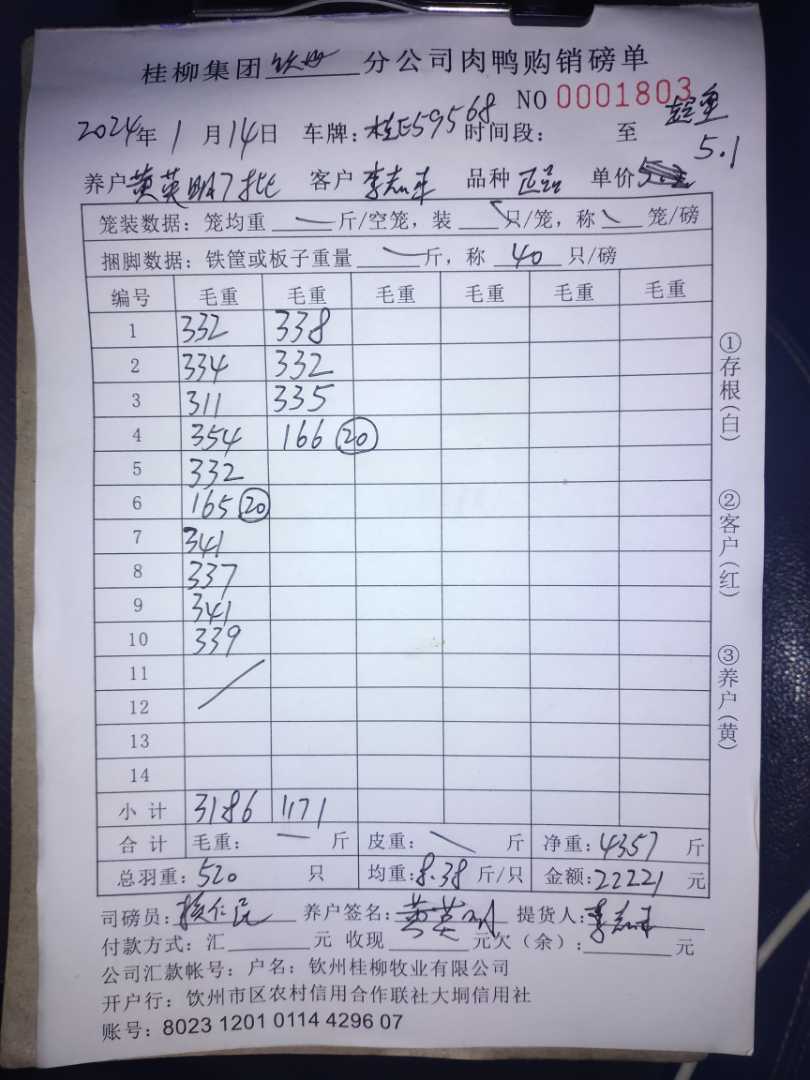 桂柳集团 钦州 分公司肉鸭购销磅单
NO 0001803
2024年 1 月 14日 车牌: 桂E59568 时间段: 至
5.1
养户 黄英明7批 客户 李志 品种 正品 单价
笼装数据: 笼均重 — 斤/空笼, 装 只/笼, 称 笼/磅
捆脚数据: 铁筐或板子重量 — 斤, 称 40 只/磅
编号 毛重 毛重 毛重 毛重 毛重 毛重
1 332 338
2 334 332
3 311 335
4 354 166 ⑳
5 332
6 165 ⑳
7 341
8 337
9 341
10 339
11
12
13
14
小计 3186 1171
合计 毛重: — 斤 皮重: 斤 净重: 4357 斤
总羽重: 520 只 均重: 8.38 斤/只 金额: 22221 元
司磅员: 养户签名: 黄英明 提货人: 李志
付款方式: 汇 元 收现 元欠(余): 元
公司汇款帐号: 户名: 钦州桂柳牧业有限公司
开户行: 钦州市区农村信用合作联社大垌信用社
账号: 8023 1201 0114 4296 07
①存根(白)
②客户(红)
③养户(黄)